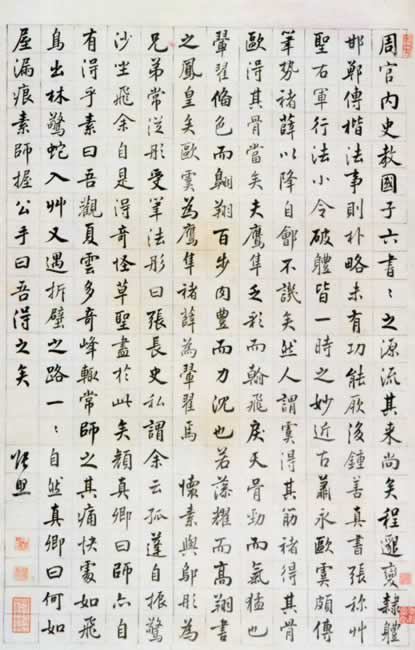 周官內史教國子六書〻之源流其來尚矣程邈變隸體
邯鄲傳楷法事則朴略未有功能厥後鍾善真書張稱艸
聖右軍行法小令破體皆一時之妙近古蕭永歐虞頗傳
筆勢褚薛以降自鄶不譏矣然人謂虞得其筋褚得其骨
歐得其骨當矣夫鷹隼乏彩而翰飛戾天骨勁而氣猛也
翬翟俻色而翺翔百步肉豊而力沈也若藻耀而高翔書
之鳳皇矣歐虞為鷹隼褚薛為翬翟焉 懷素與鄔彤為
兄弟常從彤受筆法彤曰張長史私謂余云孤蓬自振驚
沙坐飛余自是得奇怪草聖盡於此矣顏真卿曰師亦自
有得乎素曰吾觀夏雲多奇峰輒常師之其痛快處如飛
鳥出林驚蛇入艸又遇折壁之路一〻自然真卿曰何如
屋漏痕素師握公手曰吾得之矣
張照